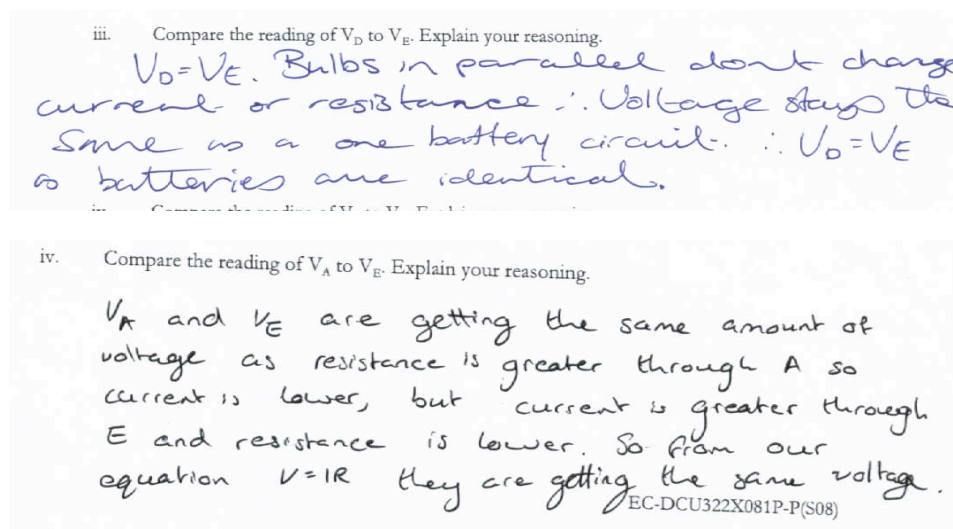 iii. Compare the reading of V_D to V_E. Explain your reasoning.
V_D=V_E. Bulbs in parallel dont change
current or resistance ∴ Voltage stays the
same as a one battery circuit. ∴ V_D=V_E
as batteries are identical.
iv. Compare the reading of V_A to V_E. Explain your reasoning.
V_A and V_E are getting the same amount of
voltage as resistance is greater through A so
current is lower, but current is greater through
E and resistance is lower. So from our
equation V=IR they are getting the same voltage.
EC-DCU322X081P-P(S08)